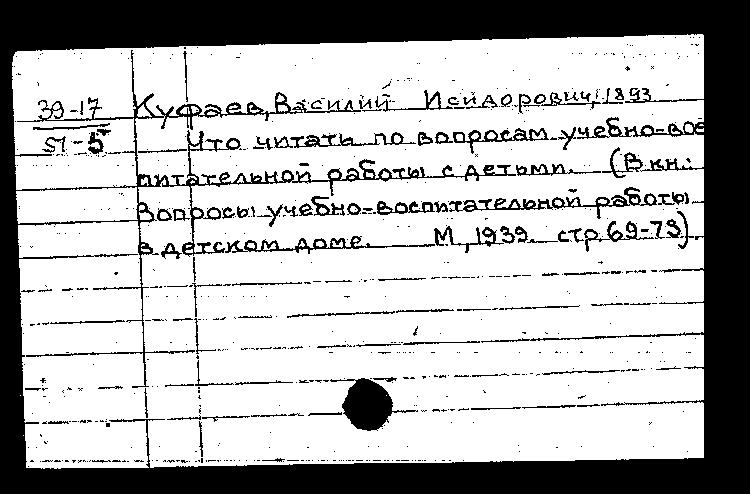 39-17 Куфаев, Василий Исидорович, 1893
51-5 Что читать по вопросам учебно-вос
питательной работы с детьми. (В кн.:
Вопросы учебно-воспитательной работы
в детском доме. М, 1939. стр. 69-73).